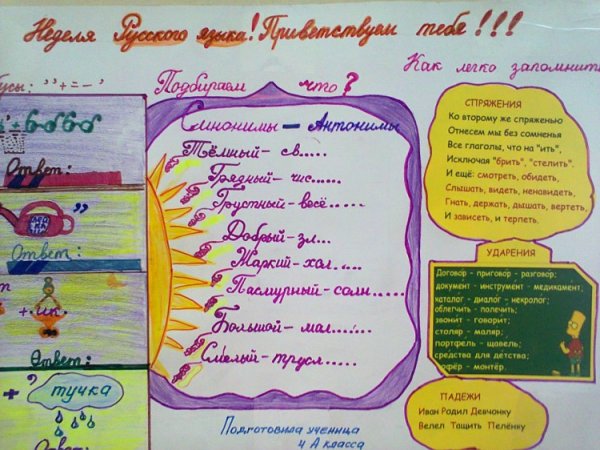 Неделя Русского языка! Приветствуем тебе!!!
Подбираем что?
Как легко запомнить
усы: ’’+=-’
Ответ:
’’
Ответ:
+ ип
Ответ:
+ ? тучка
Ответ:
Синонимы - Антонимы
Тёмный - св.....
Грядный - чис......
Грустный - весё......
Добрый - зл...
Жаркий - хол.....
Пасмурный - солн......
Большой - мал......
Смелый - трусл.....
Подготовила ученица
4 А класса
СПРЯЖЕНИЯ
Ко второму же спряженью
Отнесем мы без сомненья
Все глаголы, что на "ить",
Исключая "брить", "стелить".
И ещё: смотреть, обидеть,
Слышать, видеть, ненавидеть,
Гнать, держать, дышать, вертеть,
И зависеть, и терпеть.
УДАРЕНИЯ
Договор - приговор - разговор;
документ - инструмент - медикамент;
каталог - диалог - некролог;
облегчить - полечить;
звонит - говорит;
столяр - маляр;
портфель - щавель;
средства для детства;
офёр - монтёр.
ПАДЕЖИ
Иван Родил Девчонку
Велел Тащить Пелёнку